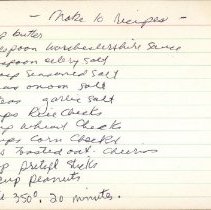 - Make 10 Recipes -
p butter
espoon Worchestershire Sauce
spoon celery salt
oup seasoned salt
onion salt
teas garlic salt
ups Rice Checks
up Wheat Checks
ups Corn Checks
s Toasted oat - Cheerios
up pretzel sticks
cup peanuts
350°. 20 minutes.